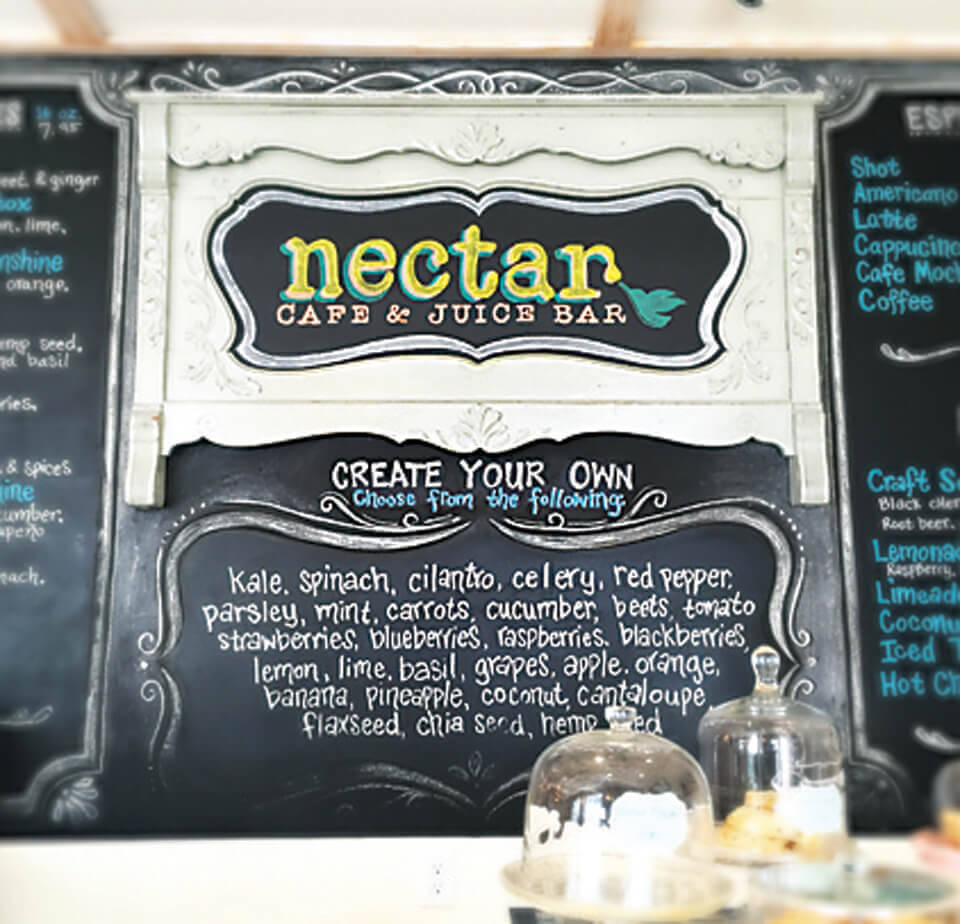 16 oz.
7.95
& ginger
lime,
orange.
seed,
basil
& spices
nectar
CAFE & JUICE BAR
CREATE YOUR OWN
Choose from the following:
Kale, spinach, cilantro, celery, red pepper,
parsley, mint, carrots, cucumber, beets, tomato
strawberries, blueberries, raspberries, blackberries,
lemon, lime, basil, grapes, apple, orange,
banana, pineapple, coconut, cantaloupe,
flaxseed, chia seed, hemp
Shot
Americano
Latte
Cappuccino
Cafe
Coffee
Craft
Black
Root beer,
Raspberry,
Iced
Hot